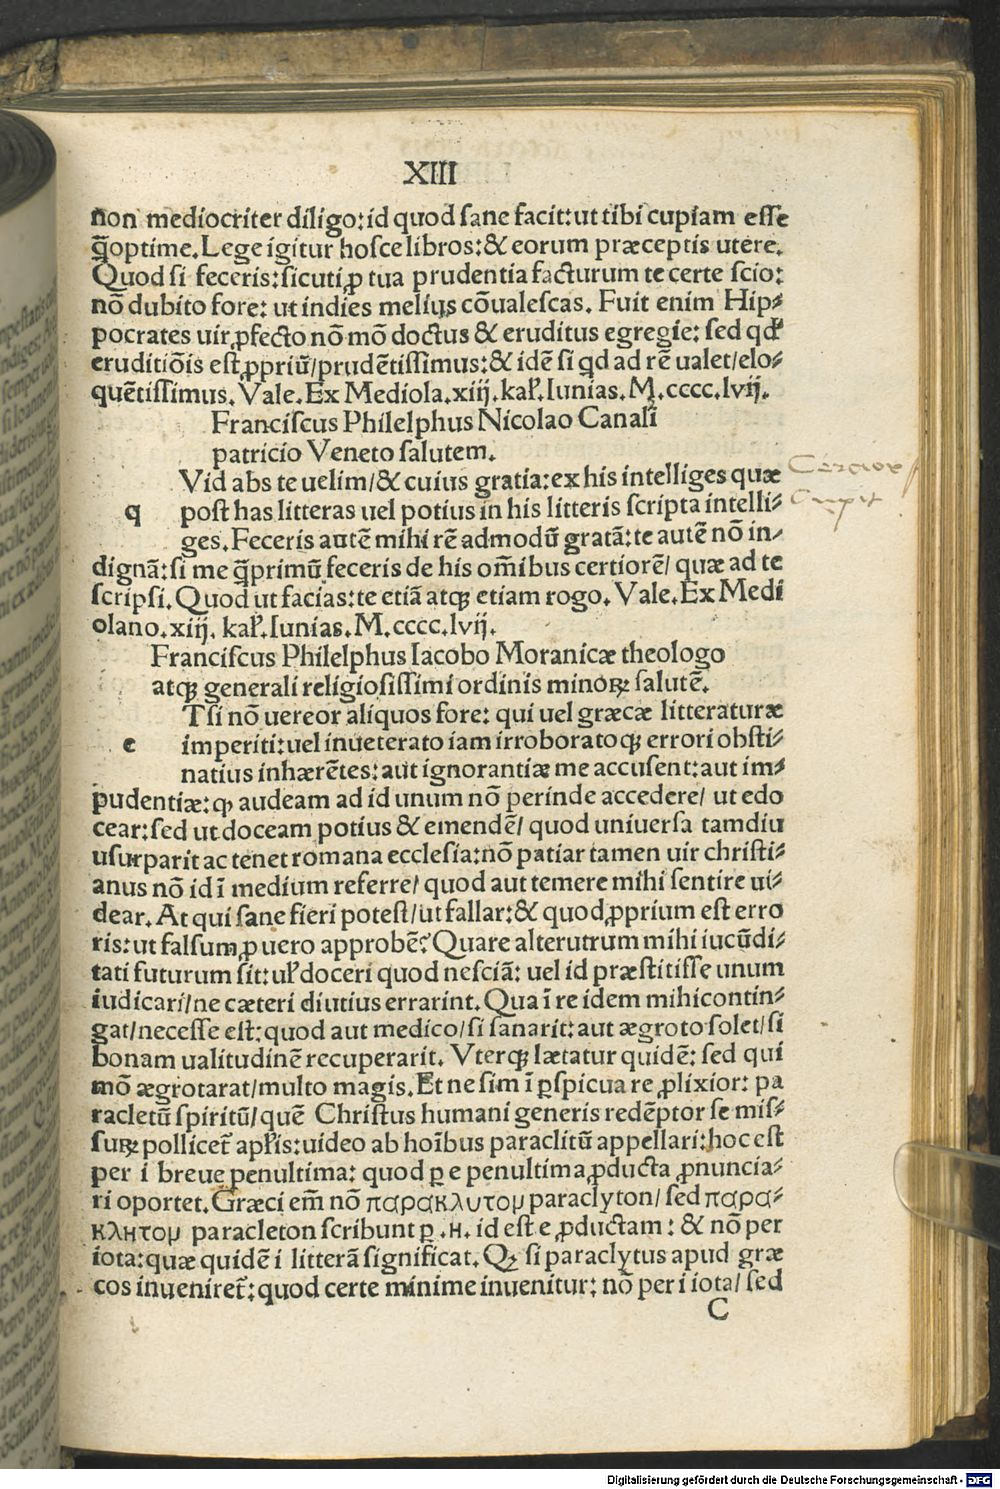 XIII
non mediocriter diligo: id quod sane facit: ut tibi cupiam esse
q̃optime. Lege igitur hosce libros: & eorum præceptis utere.
Quod si feceris: sicuti ꝓ tua prudentia facturum te certe scio:
nō dubito fore: ut indies melius cōualescas. Fuit enim Hip⸗
pocrates uir ꝓfecto nō mō doctus & eruditus egregie: sed qđ
eruditiōis est ꝓpriū/prudētissimus: & idē si qd ad rē ualet/elo⸗
quētissimus. Vale. Ex Mediola. xiij. kał. Iunias. M. cccc. lvij.
Franciscus Philelphus Nicolao Canali
patricio Veneto salutem.
Vid abs te uelim/& cuius gratia: ex his intelliges quæ
q post has litteras uel potius in his litteris scripta intelli⸗
ges. Feceris autē mihi rē admodū gratā: te autē nō in⸗
dignā: si me q̃primū feceris de his om̄ibus certiorē/ quæ ad te
scripsi. Quod ut facias: te etiā atqꝫ etiam rogo. Vale. Ex Medi
olano. xiij. kał. Iunias. M. cccc. lvij.
Franciscus Philelphus Iacobo Moranicæ theologo
atqꝫ generali religiosissimi ordinis minoꝝ salutē.
Tsi nō uereor aliquos fore: qui uel græcæ litteraturæ
e imperiti: uel inueterato iam irroboratoqꝫ errori obsti⸗
natius inhærētes: aut ignorantiæ me accusent: aut im⸗
pudentiæ: ꝙ audeam ad id unum nō perinde accedere/ ut edo
cear: sed ut doceam potius & emendē/ quod uniuersa tamdiu
usurparit ac tenet romana ecclesia: nō patiar tamen uir christi⸗
anus nō id ī medium referre/ quod aut temere mihi sentire ui⸗
dear. At qui sane fieri potest/ut fallar: & quod ꝓprium est erro
ris: ut falsum ꝓ uero approbē? Quare alterutrum mihi iucūdi⸗
tati futurum sit: uł doceri quod nesciā: uel id præstitisse unum
iudicari/ne cæteri diutius errarint. Qua ī re idem mihi contin⸗
gat/necesse est: quod aut medico/si sanarit: aut ægroto solet/si
bonam ualitudinē recuperarit. Vterqꝫ lætatur quidē: sed qui
mō ægrotarat/multo magis. Et ne sim ī ꝑspicua re ꝓlixior: pa
racletū spiritū/quē Christus humani generis redēptor se mis⸗
suꝝ pollicet̃ apłis: uideo ab hoībus paraclitū appellari: hoc est
per i breue penultima: quod ꝑ e penultima ꝓducta ꝓnuncia⸗
ri oportet. Græci em̄ nō παρακλυτομ paraclyton/ sed παρα⸗
κλητομ paracleton scribunt ꝑ .н. id est e ꝓductam: & nō per
iota: quæ quidē i litterā significat. Qꝫ si paraclytus apud græ
cos inueniret̃: quod certe minime inuenitur: nō per i iota/ sed
C
Digitalisierung gefördert durch die Deutsche Forschungsgemeinschaft - DFG